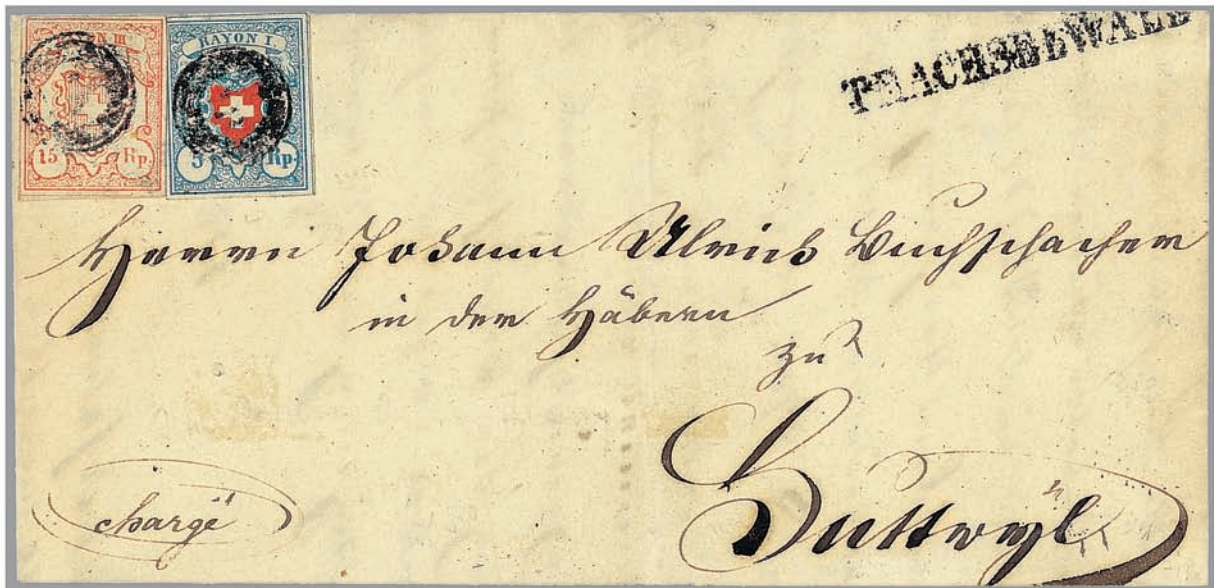 RAYON I.
15 Rp.
5 Rp.
TRACHSELWALD
Herrn Johann Ulrich Buchschacher
in der Häbern
zu
Huttwyl
chargé